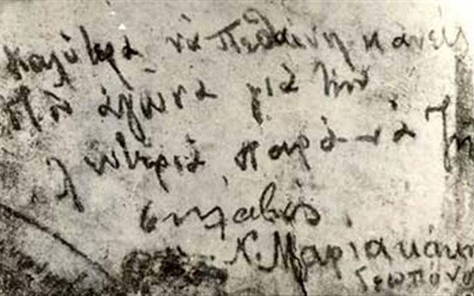 καλύτερα νὰ πεθαίνη κανείς
στὸν ἀγώνα γιὰ τὴν
λευτεριά παρὰ νὰ ζῆ
σκλάβος
Κ. Μαριακάκ
Γεωπόν